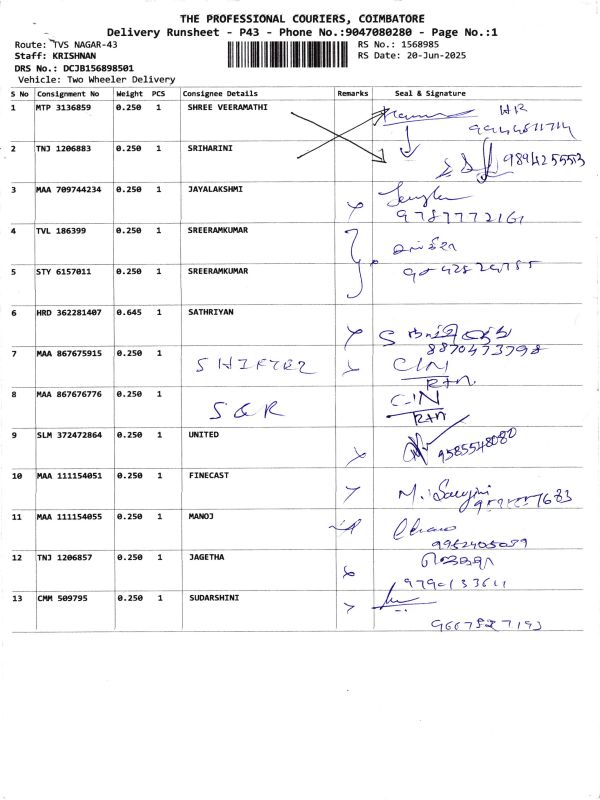 THE PROFESSIONAL COURIERS, COIMBATORE
Delivery Runsheet - P43 - Phone No.:9047080280 - Page No.:1
Route: TVS NAGAR-43 RS No.: 1568985
Staff: KRISHNAN RS Date: 20-Jun-2025
DRS No.: DCJB156898501
Vehicle: Two Wheeler Delivery
S No Consignment No Weight PCS Consignee Details Remarks Seal & Signature
1 MTP 3136859 0.250 1 SHREE VEERAMATHI HR
2 TNJ 1206883 0.250 1 SRIHARINI
3 MAA 709744234 0.250 1 JAYALAKSHMI
9787772161
4 TVL 186399 0.250 1 SREERAMKUMAR
5 STY 6157011 0.250 1 SREERAMKUMAR
6 HRD 362281407 0.645 1 SATHRIYAN
8870473798
7 MAA 867675915 0.250 1 CIN
RTN
8 MAA 867676776 0.250 1 CIN
RTN
9 SLM 372472864 0.250 1 UNITED 9585548080
10 MAA 111154051 0.250 1 FINECAST
11 MAA 111154055 0.250 1 MANOJ
12 TNJ 1206857 0.250 1 JAGETHA
9790133611
13 CMM 509795 0.250 1 SUDARSHINI